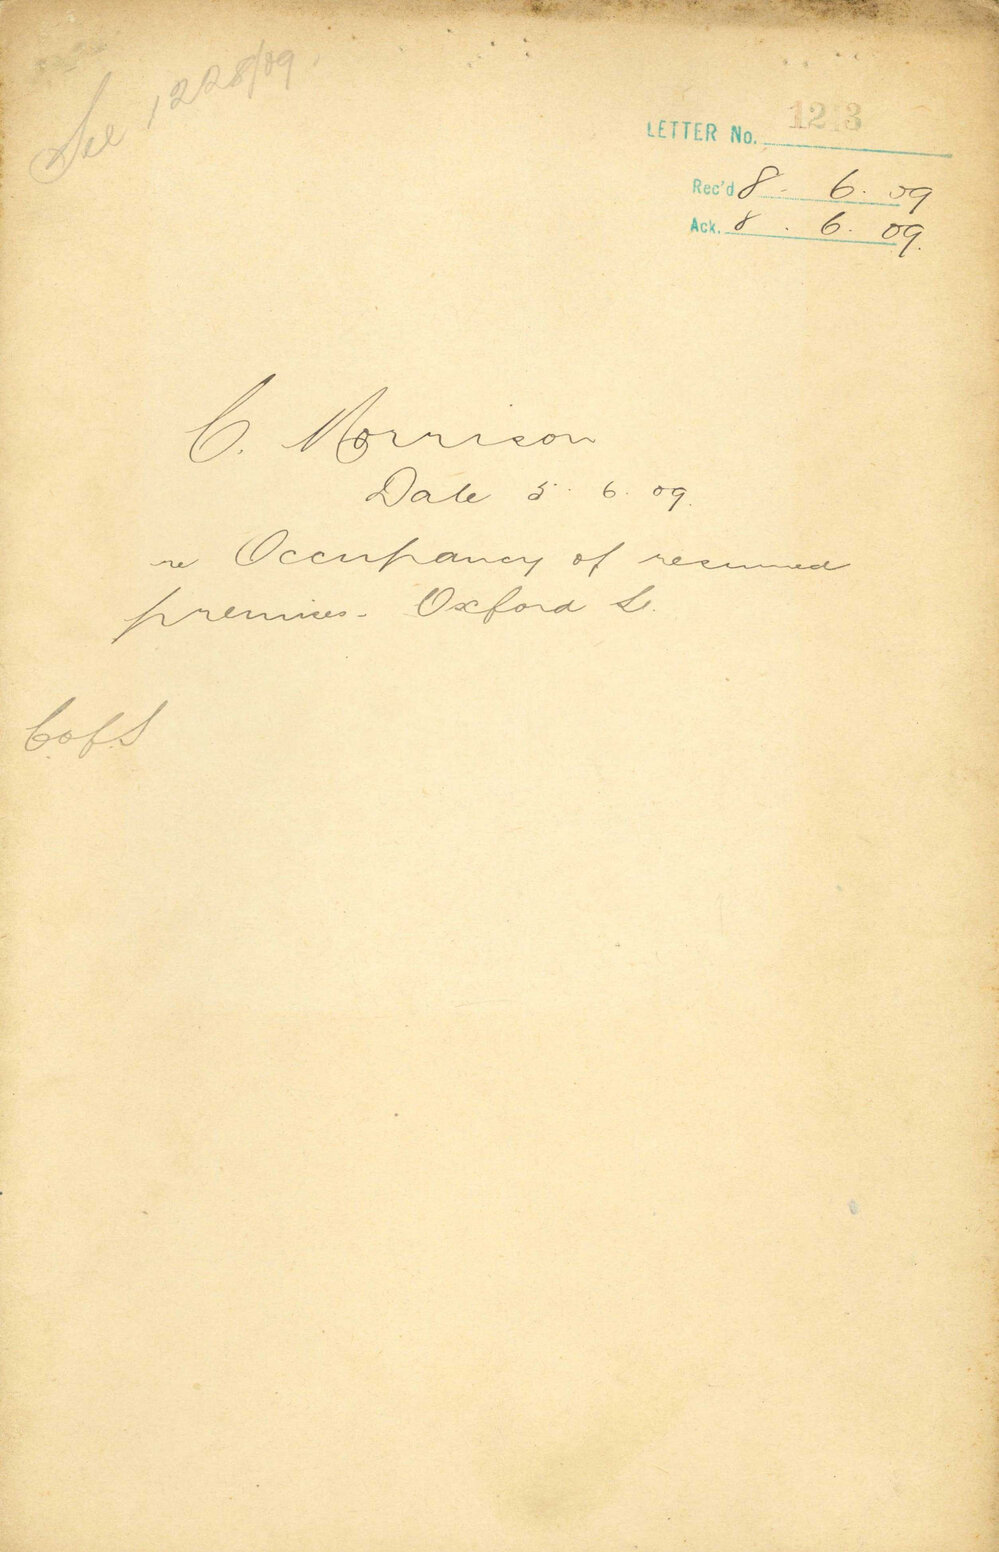 See 1228/09
LETTER No.
Rec'd 8. 6. 09
Ack. 8. 6. 09.
C. Morrison
Date 5. 6. 09.
re Occupancy of resumed
premises - Oxford St.
C. of S